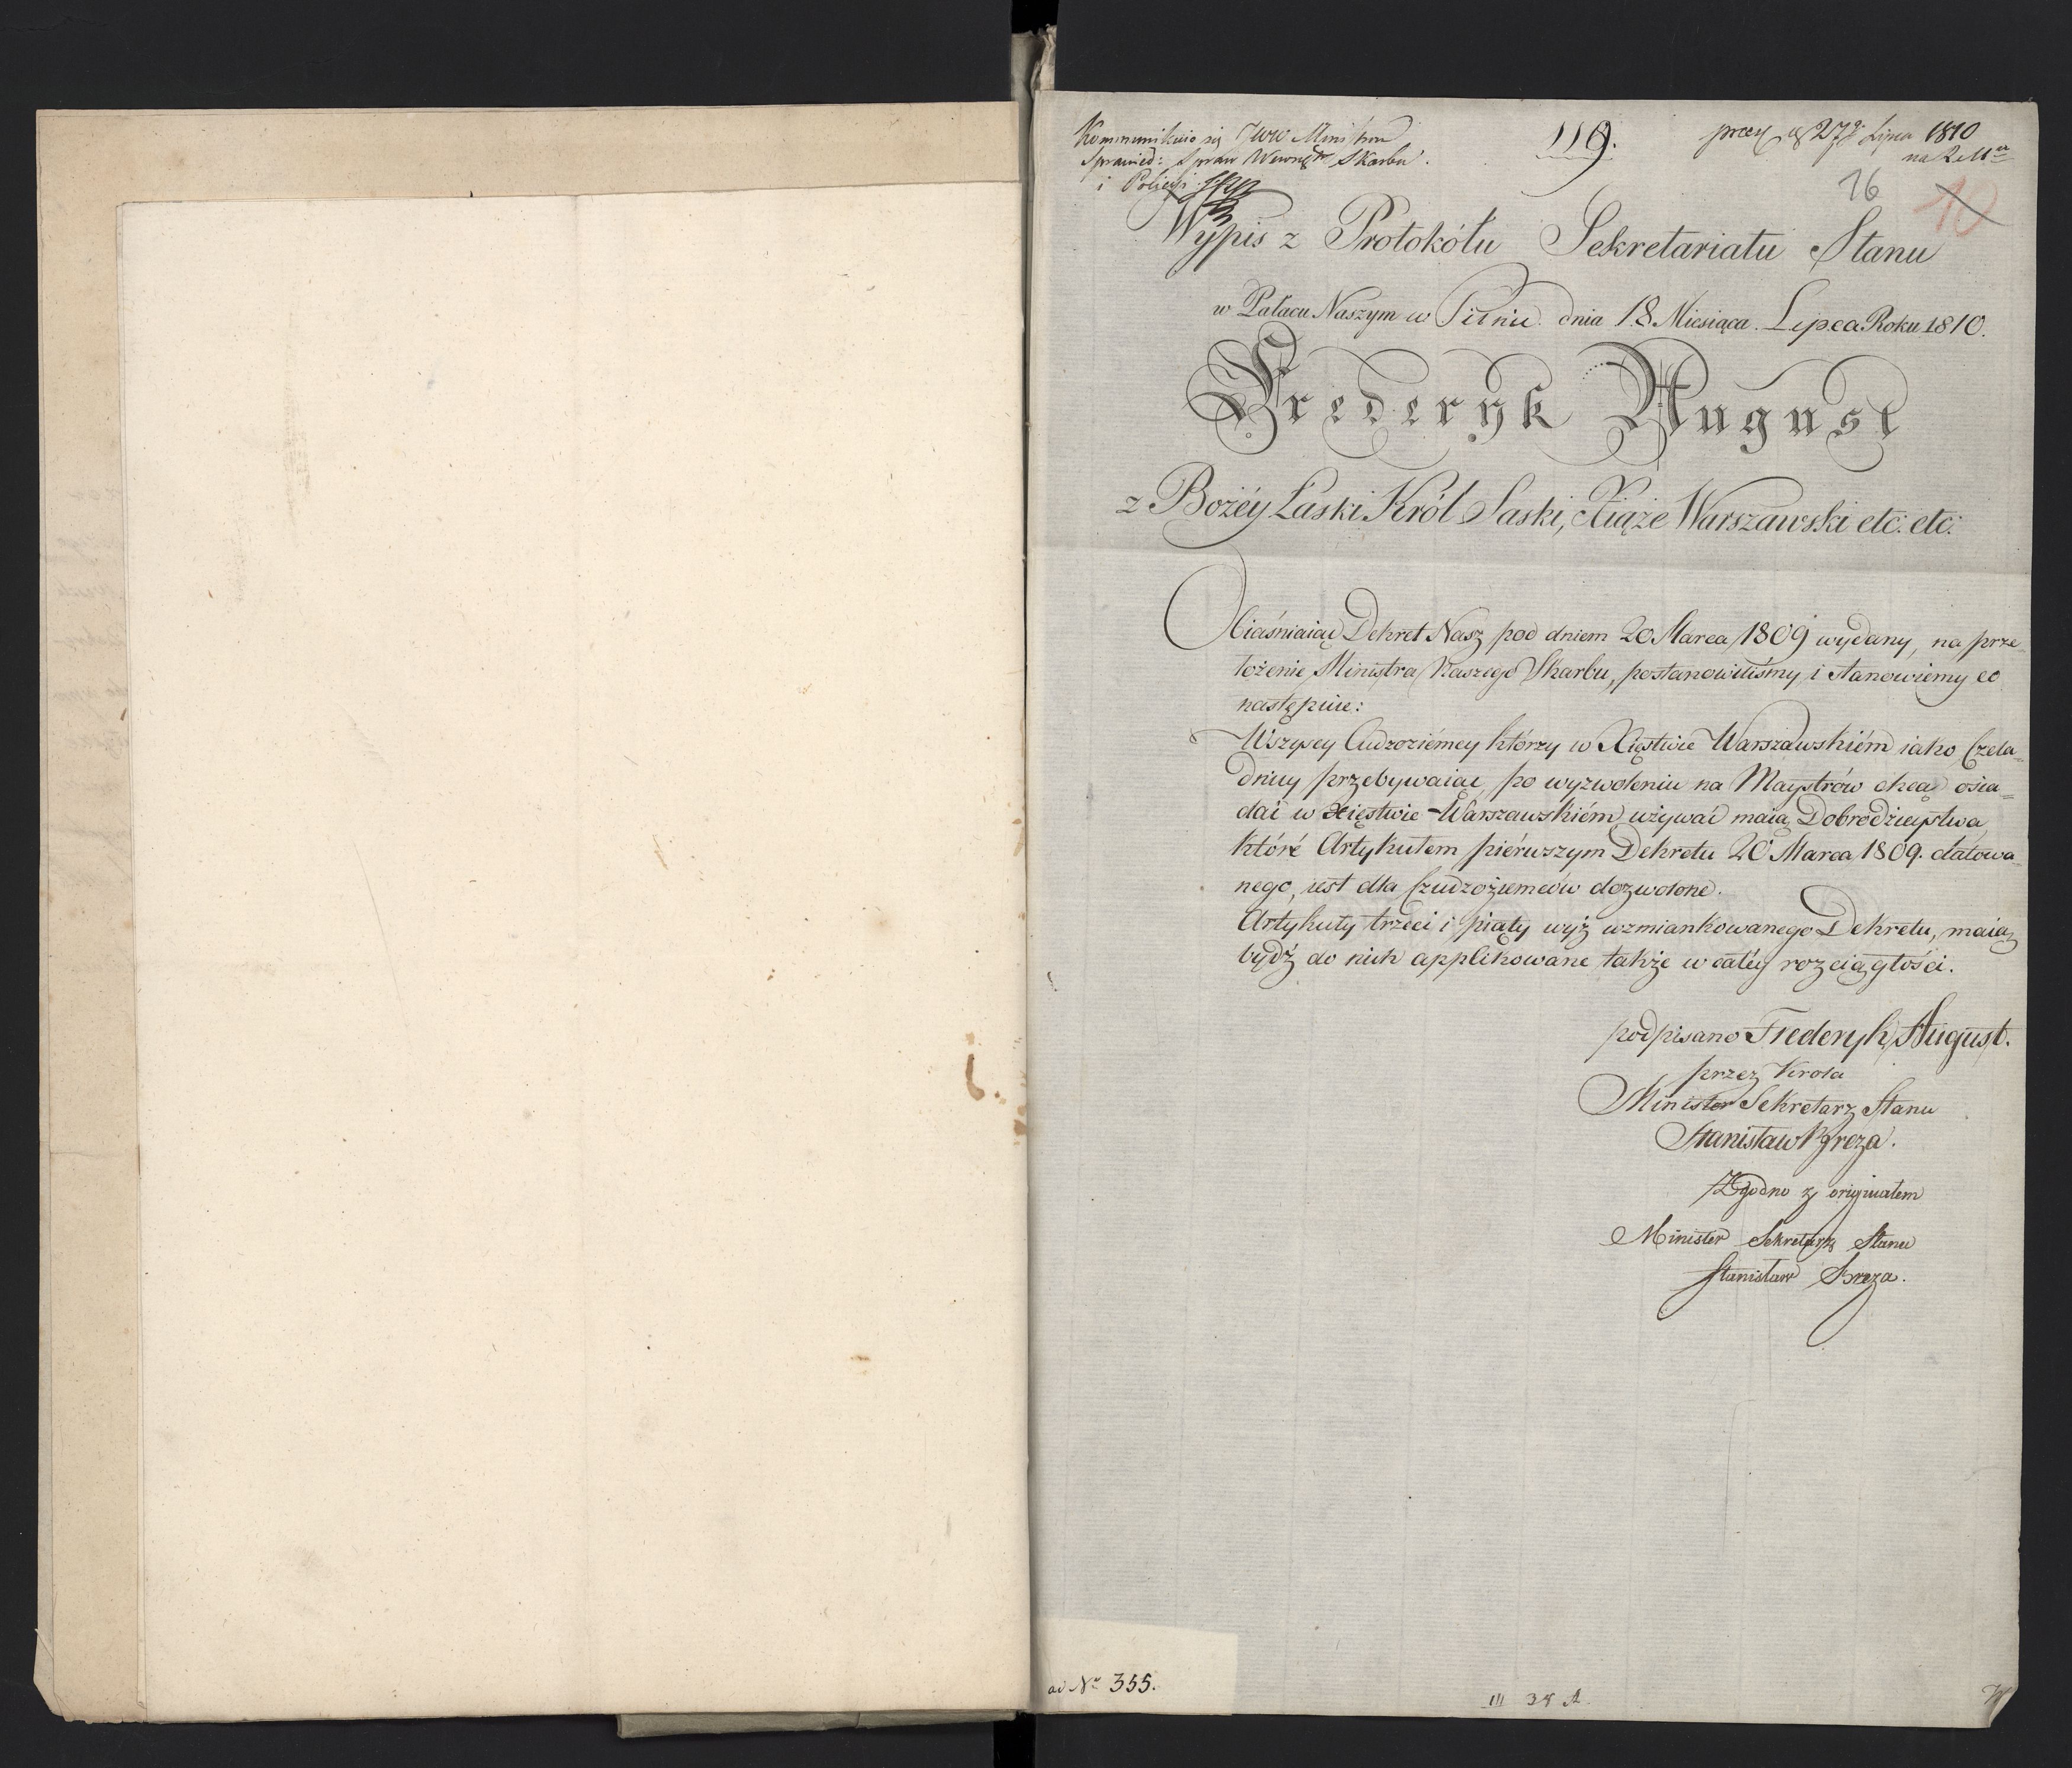 Kommunikuie się JWW Ministrom
Sprawied: Spraw Wewnętr Skarbu.
i Policyi
119.
27go Lipca 1810
16
10
Wypis z Protokółu Sekretariatu Stanu
w Pałacu Naszym w Pilnie. dnia 18 Miesiąca. Lipca Roku 1810.
Fryderyk August
z Bożéy Łaski Król Saski, Xiąże Warszawski etc: etc:
Obiaśniaiąc Dekret Nasz pod dniem 20 Marca 1809 wydany, na prze-
łożenie Ministra Naszego Skarbu, postanowiliśmy i stanowiemy co
następuie:
Wszyscy Cudzoziémcy którzy w Xięstwie Warszawskiém iako Czela-
dnicy przebywaiąc, po wyzwoleniu na Maystrów chcą osia-
dać w Xięstwie Warszawskiém, używać maią Dobrodzieystwa,
któré Artykułem piérwszym Dekretu 20 Marca 1809. datowa-
nego, iest dla Czudzoziemców dozwolone.
Artykuły trzeci i piąty wyż wzmiankowanego Dekretu, maią
bydź do nich applikowane także w całéy rozciągłości.
podpisano Frederyk August.
przez Krola
Minister Sekretarz Stanu
Stanisław Breza.
Zgodno z originałem
Minister Sekretarz Stanu
Stanisław Breza.
ad Nr 355.
III 38 A.